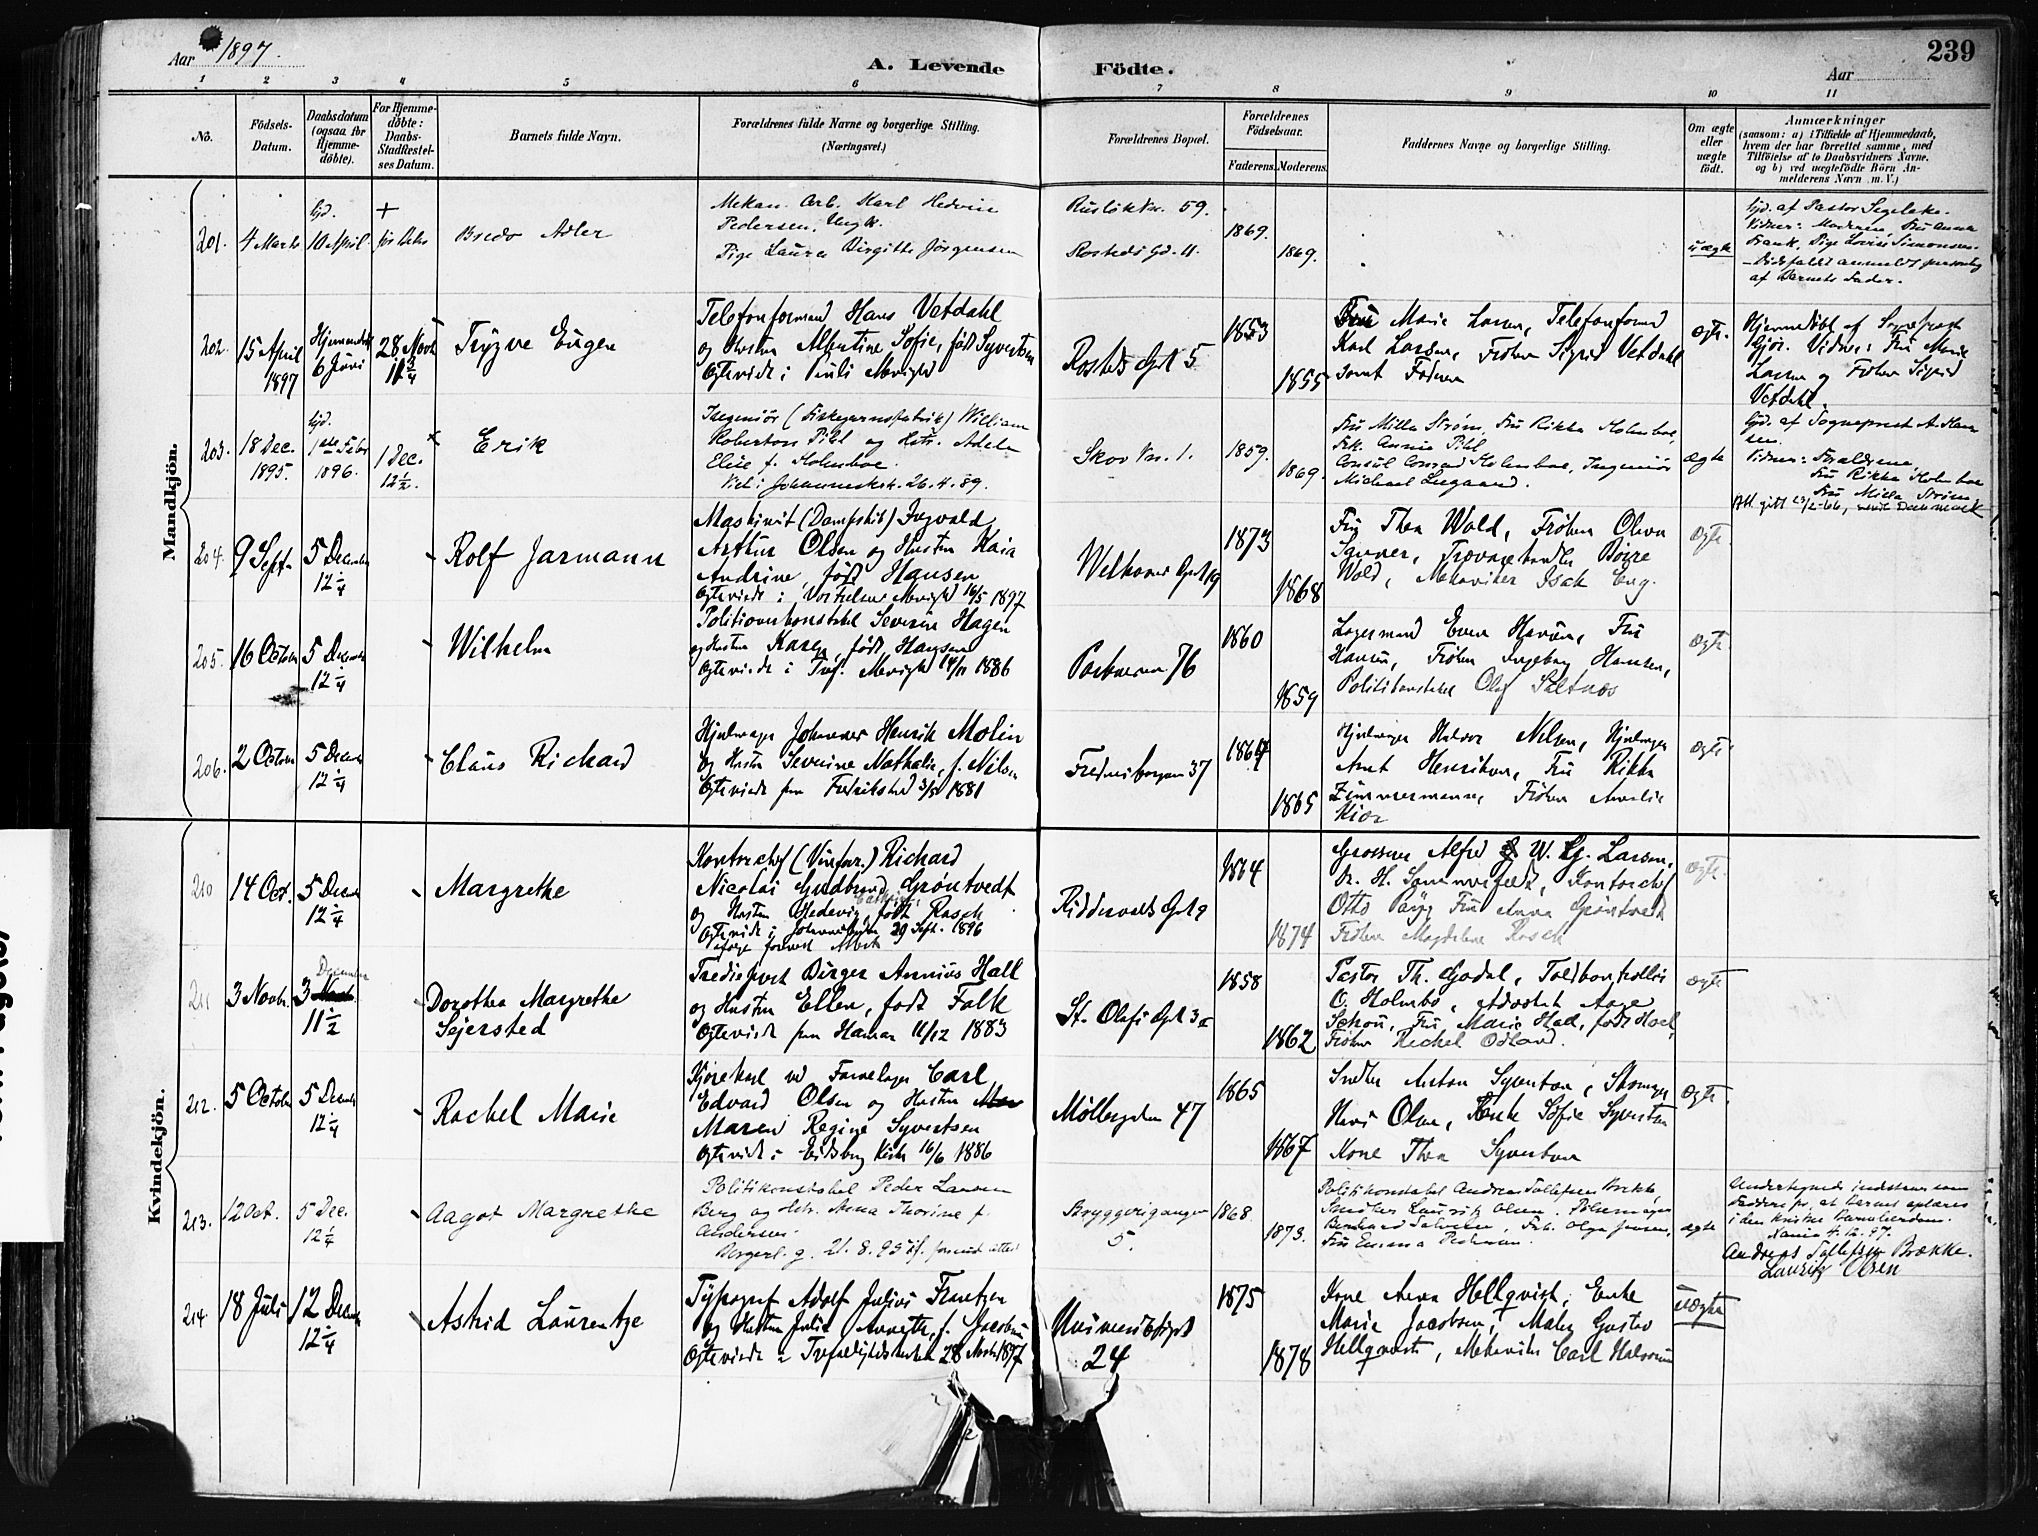 Aar 1897.
A. Levende Födte.
Aar
239
1 2 3 4 5 6 7 8 9 10 11
No.
Födsels-Datum.
Daabsdatum (ogsaa for Hjemme-döbte).
For Hjemme-döbte: Daabs-Stadfæstel-ses Datum.
Barnets fulde Navn.
Forældrenes fulde Navne og borgerlige Stilling. (Næringsvei.)
Forældrenes Bopæl.
Forældrenes Födselsaar.
Faderens. Moderens.
Faddernes Navne og borgerlige Stilling.
Om ægte eller uægte födt.
Anmærkninger
(saasom: a) i Tilfælde af Hjemmedaab, hvem der har forrettet samme, med Tilföielse af to Daabsvidners Navne. og b) ved uægtefödte Börn An-melderens Navn m. V.)
Mandkjön.
201. 4 Marts
hjd. 10 April
+
Bredo Adler
Mekan. Arb. Karl Hedvin
Pedersen, Ungk.
Pige Laura Birgitte Jørgensen
Rusløkkv. 59.
Rosteds Gd. 11.
1869.
1869.
uægte
hjd. af Pastor Segelcke.
Vidner: Moderen, Fru Anna
Frank, Pige Lovise Simonsen.
– Dødsfaldt anmeldt personlig
af Barnets Fader.
202. 15 April 1897
6 Juni
28 Novb 11 3/4
Trygve Eugen
Telefonformand Hans Vetdahl
og Hustru Albertine Sofie, født Syvertsen
Rosteds Gd 5
1853
1855
Fru Marie Larsen, Telefonformd
Karl Larsen, Frøken Sigrid Vetdahl
samt Faderen
ægte.
Hjemmedøbt af Sogneprest
Vidner: Fru Marie
Larsen og Frøken Sigrid
Vetdahl.
203. 18 Dec. 1895.
hjd. 1ste Febr 1896.
1 Dec. 12 1/2.
Erik
Ingeniør (Fiskegarnsfabrik) William
Robertson Pihl og Hstr. Adele
Elise f. Holmboe.
Viet i Johanneskrk. 26.4.89.
Skov Vn. 1.
1859.
1869.
Fru Milla Strøm, Fru Rikka Holmboe,
Frk. Annie Pihl
Consul Conrad Holmboe, Ingeniør
Michael Leegaard.
ægte
hjd. af Sogneprest A. Han
sen.
Vidner: Forældrene,
Fru Rikka Holmboe
Fru Milla Strøm
Att. gitt 23/2-66, sendt Danmark
204. 9 Septr
5 December 12 1/4
Rolf Jarmann
Maskinist (Dampskib) Ingvald
Arthur Olsen og Hustru Kaia
Andrine, født Hansen
16/5 1897
Welhavens Gd 19
1873
1868
Fru Thea Wold, Frøken Oleva
Sanner, Trævarehandler Børre
Wold, Mekaniker Isak Eng.
Ægte
205. 16 October
5 December 12 1/4
Wilhelm
Politioverkonstabel Severin Hagen
og Hustru Karen, født Hansen
Ægteviede i Tref. Menigh 14/11 1886
76
1860
1859
Lagermand Even Hansen, Fru
Hansen, Frøken Ingeborg Hansen,
Politikonstabel Olaf Saltnæs
Ægte
206. 2 October
5 December 12 1/4
Claus Richard
Hjulmager Johannes Henrik Molin
og Hustru Severine Nathalie, f. Nilsen
Ægteviede paa Fredrikstad 3/5 1881
Fredensborgvn 37
1864
1865
Hjulmager Halvor Nilsen, Hjulmager
Arnt Henriksen, Fru Rikka
Zimmermann, Frøken Amalie
Kiær
Ægte
Kvindekjön.
210 14 Oct.
5 Decembr 12 1/4
Margrethe
Kontorchef (Vinforr.) Richard
Nicolai Gudbrand Grøntvedt
og Hustru Hedevig Cathrine, født Rasch
Ægteviede i Johanneskirken 29 Sept. 1896
ifølge forevist Attest
Riddervolds Gd 9
1864
1874
Grosserer Alfred W. G. Larsen,
Dr. H. Sommerfeldt, Kontorchef
Otto Fru Anna Grøntvedt
Frøken Magdalene Rasch
ægte
211 3 Novbr.
3 December 11 1/2
Dorothea Margrethe
Sejersted
Trediepræst Birger Annius Hall
og Hustru Ellen, født Falk
Ægteviede paa Hamar 11/12 1883
St. Olafs Gd 3a
1858
1862
Pastor Th. Godal, Toldkontrollør
O. Holmbo, Advokat Aage
Schou, Fru Marie Hall, født Hoel,
Frøken Rachel Odland.
ægte
212. 5 October
5 Decembr 12 1/4
Rachel Marie
Kjørekarl ved Farvelager Carl
Edvard Olsen og Hustru
Maren Regine Syvertsen
Ægteviede i Eidsberg Kirke 16/6 1886
Møllergaden 47
1865
1867
Snedker Anton Syvertsen, Skomager
Hans Olsen, Enke Sofie Syvertsen
Kone Thea Syvertsen
Ægte
213. 12 Oct.
5 Dec. 12 1/4
Aagot Margrethe
Politikonstabel Peder Larsen
Berg og Hstr. Anna Thorine f.
Andersen.
Borgerl. g. 21.8.95 if. forevist attest
Bryggerigangen 5.
1868.
1873.
Politikonstabel Andreas Tollefsen Brekke,
Snedker Lauritz Olsen, Pølsemager
Bernhard Salvesen, Frk. Olga Jensen,
Fru Emma Pedersen.
ægte
Undertegnede indestaar som
Faddere for, at Barnet oplæres
i den kristne Barnelærdom.
Kania 4.12.97.
Andreas Tollefsen Brække.
Lauritz Olsen
214 18 Juli
12 Decembr 12 1/4
Astrid Laurentze
Typograf Adolf Julius Frantzen
og Hustru Julie Annette, f. Jacobsen
Ægteviede i Trefoldighedskirken 28 1897
24
1875
1878
Kone Anna Hellqvist, Enke
Marie Jacobsen, Maler Gustav
Hellqvist, Mekaniker Carl Halvorsen
uægte